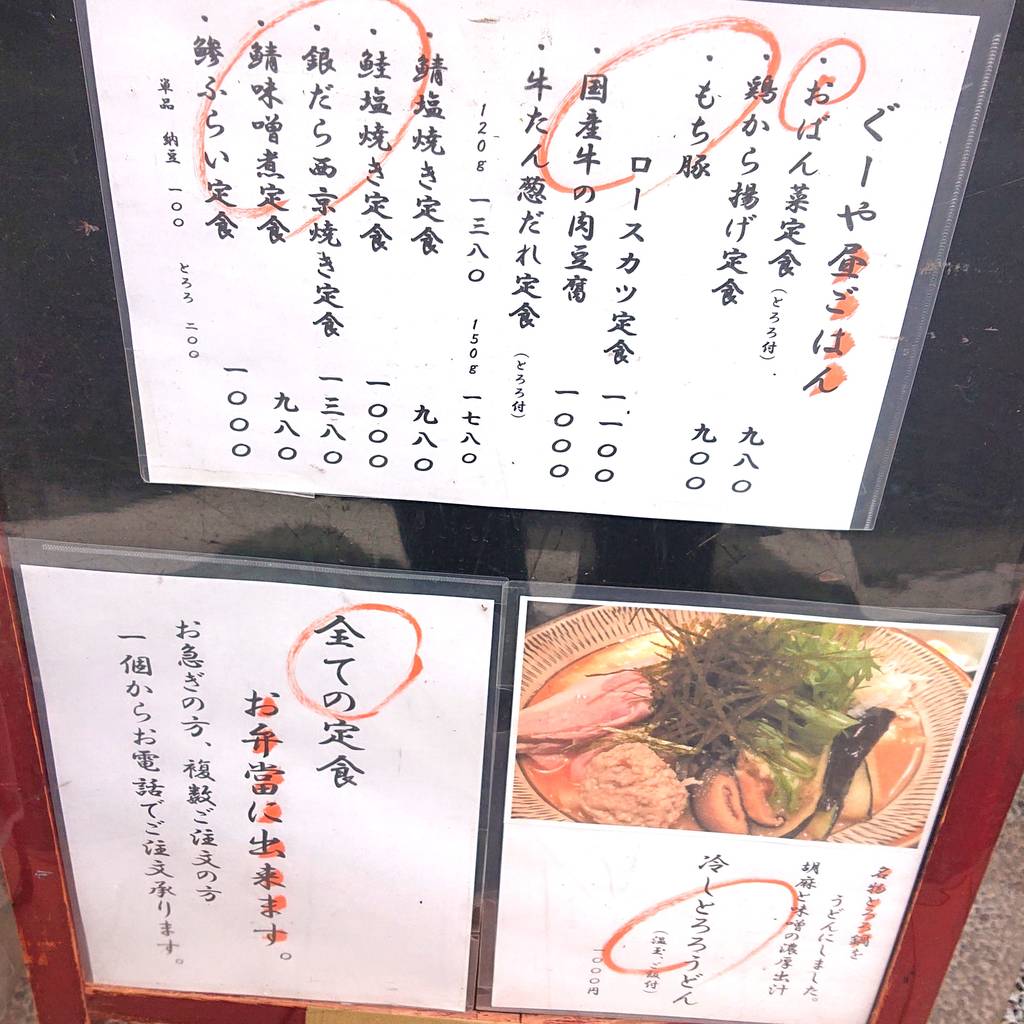 ぐーや昼ごはん
・おばん菜定食(とろろ付)
九八〇
・鶏から揚げ定食
九〇〇
・もち豚
ロースカツ定食
一一〇〇
・国産牛の肉豆腐
一〇〇〇
・牛たん葱だれ定食(とろろ付)
120g 一三八〇 150g 一七八〇
・鯖塩焼き定食 九八〇
・鮭塩焼き定食 一〇〇〇
・銀だら西京焼き定食 一三八〇
・鯖味噌煮定食 九八〇
・鰺ふらい定食 一〇〇〇
単品 納豆 一〇〇 とろろ 二〇〇
全ての定食
お弁当に出来ます。
お急ぎの方、複数ご注文の方
一個からお電話でご注文承ります。
名物とろろ鍋を
うどんにしました。
胡麻と味噌の濃厚出汁
冷しとろろうどん
(温玉、ご飯付)
一〇〇〇円